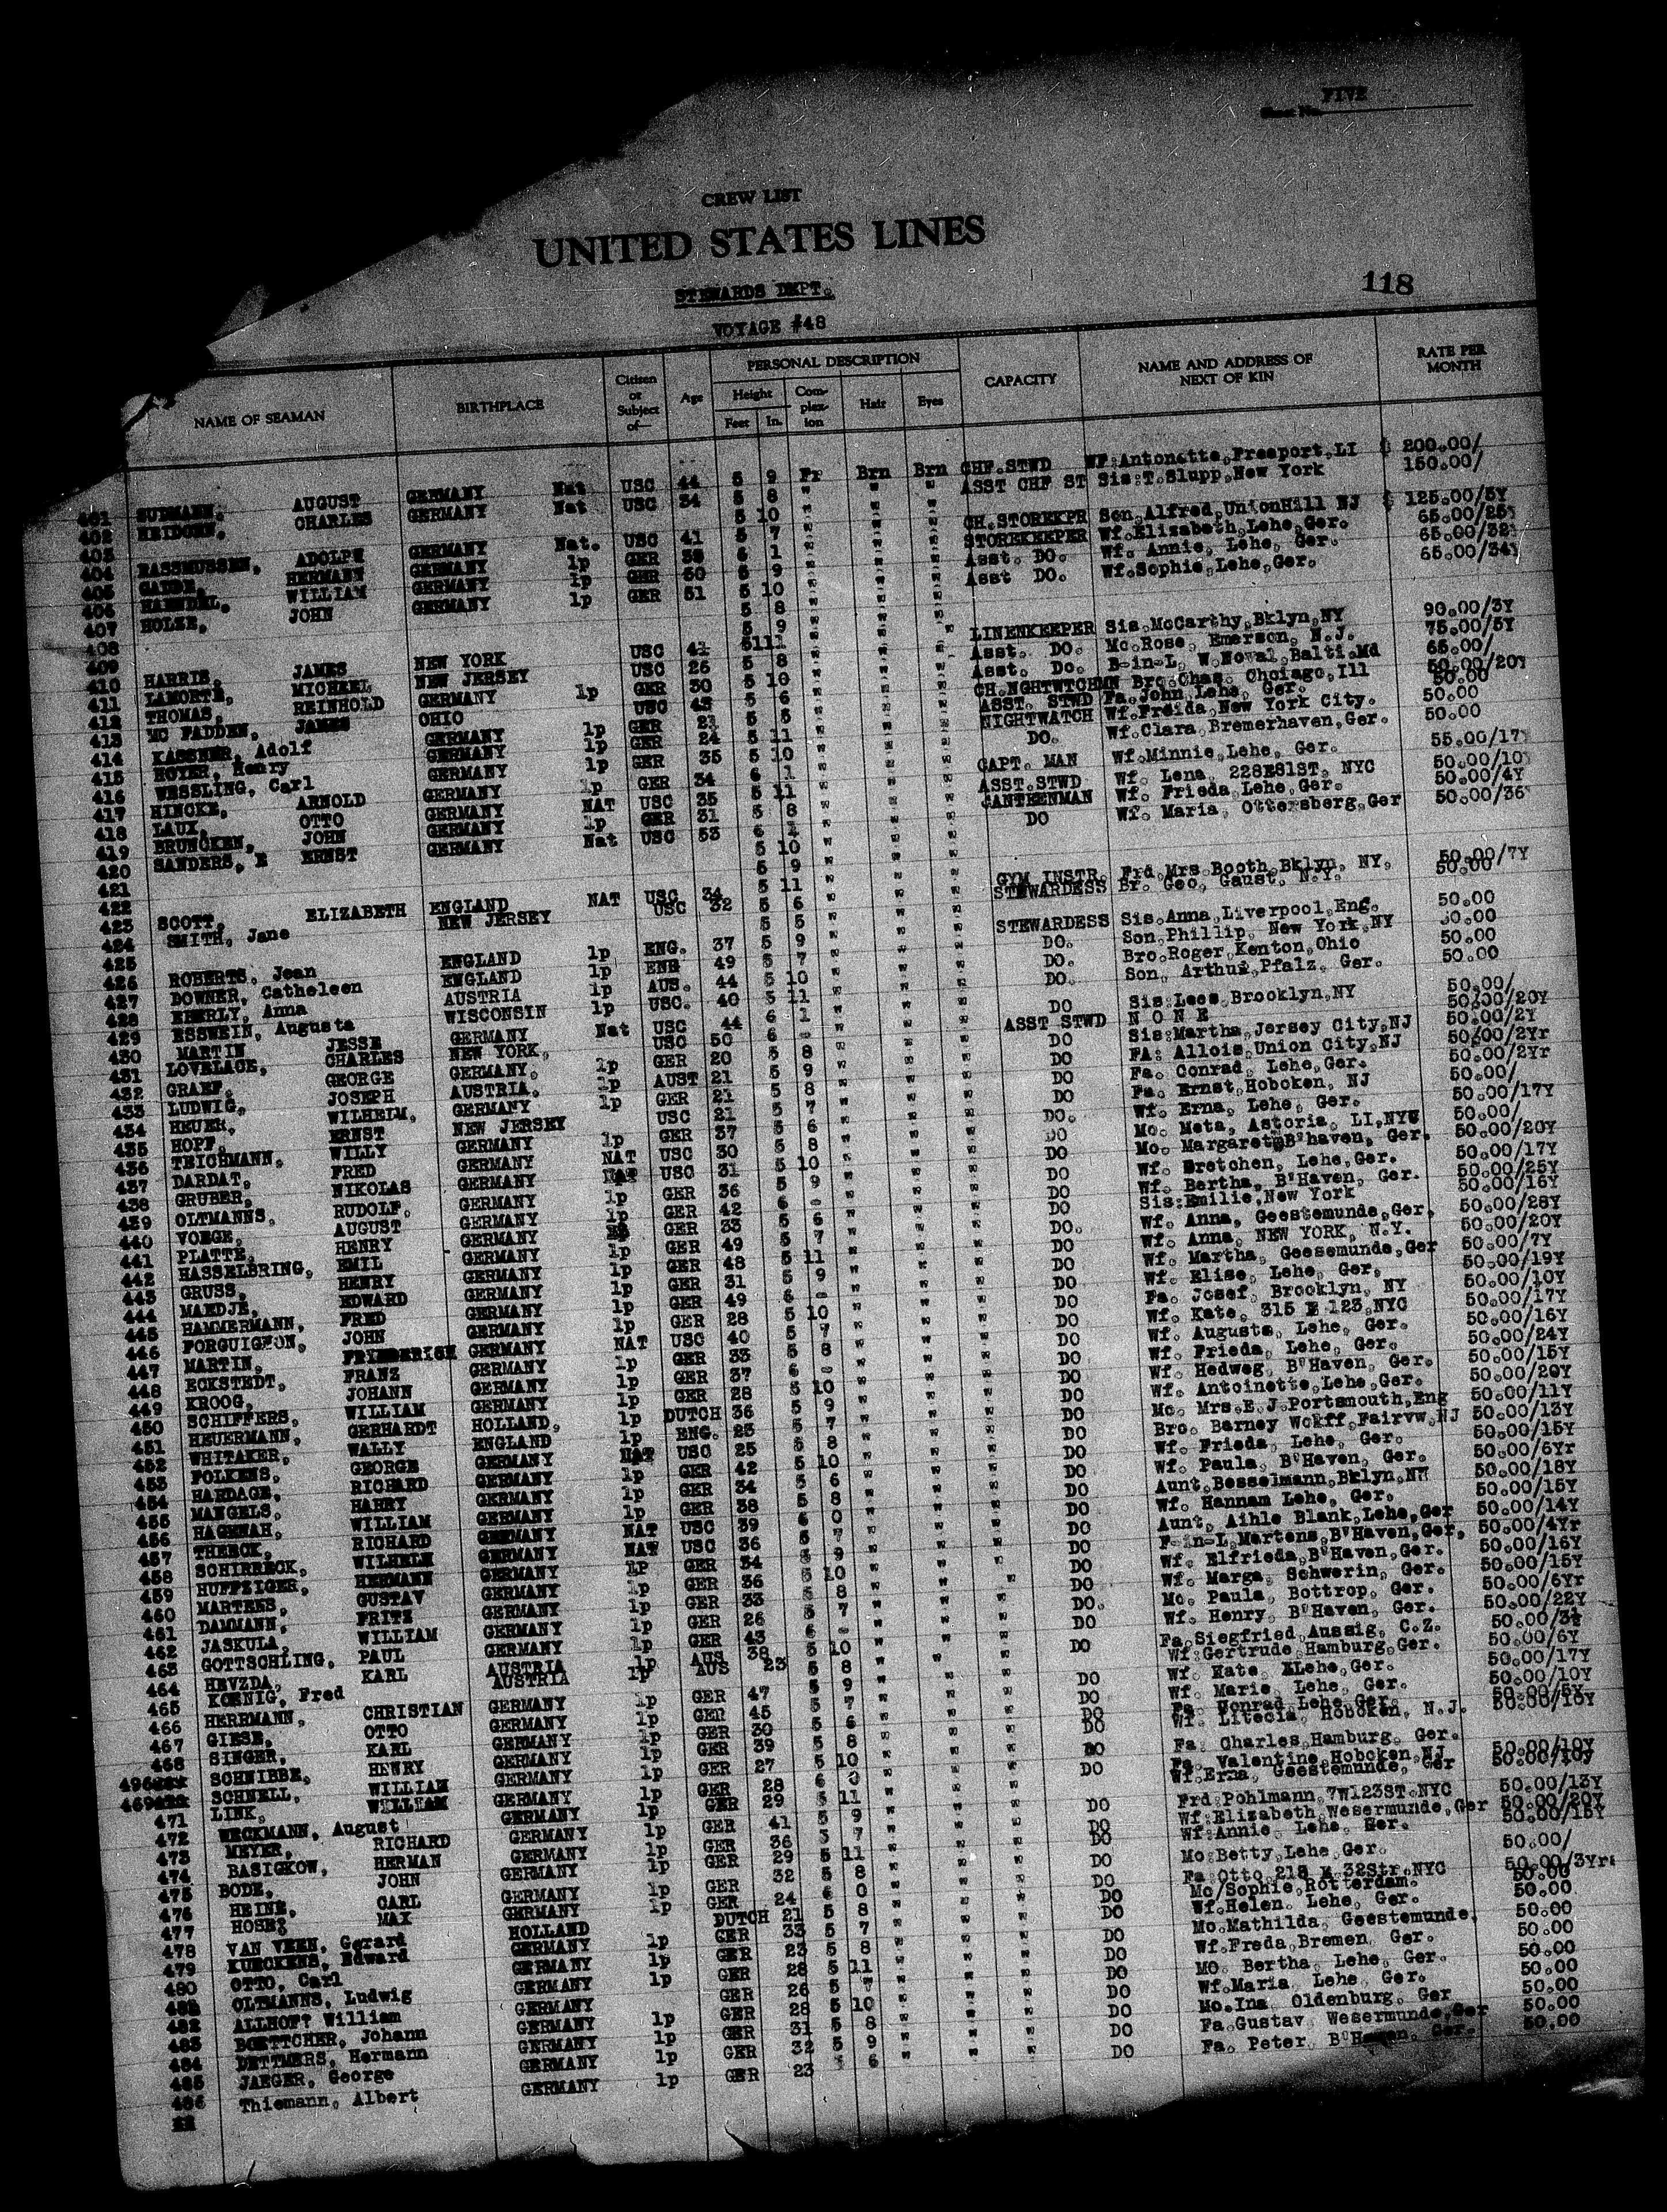 FIVE
CREW LIST
UNITED STATES LINES
STEWARDS DEPT.
118
VOYAGE #48
NAME OF SEAMAN BIRTHPLACE Citizen or Subject of— Age PERSONAL DESCRIPTION Height Feet In. Complexion Hair Eyes CAPACITY NAME AND ADDRESS OF NEXT OF KIN RATE PER MONTH
401 SUDMANN, AUGUST GERMANY Nat USC 44 5 9 Fr Brn Brn CHF.STWD WF:Antonatte,Freeport,LI $ 200.00/
402 HEIDORN, CHARLES GERMANY Nat USC 34 5 8 " " " ASST CHF ST Sis:T.Slupp,New York 150.00/
403 5 10 " " "
404 RASSMUSSEN, ADOLPH GERMANY Nat. USC 41 5 7 " " " CH.STOREKPR Son,Alfred,UnionHill NJ $ 125.00/5Y
405 HERMANN GERMANY lp GER 38 6 1 " " " STOREKEEPER Wf.Elizabeth,Lehe,Ger. 65.00/25Y
406 HAENDEL, WILLIAM GERMANY lp GER 50 5 9 " " " Asst. DO. Wf. Annie, Lehe, Ger. 65.00/32Y
407 HOLZE, JOHN GERMANY lp GER 51 5 10 " " " Asst DO. Wf.Sophie,Lehe,Ger. 65.00/34Y
408 5 8 " " "
409 5 9 " " "
410 HARRIS, JAMES NEW YORK USC 41 5 11 " " " LINENKEEPER Sis.McCarthy,Bklyn,NY 90.00/3Y
411 LAMORTE, MICHEEL NEW JERSEY USC 26 5 8 " " " Asst. DO. Mo.Rose, Emerson, N.J. 75.00/5Y
412 THOMAS, REINHOLD GERMANY lp GER 30 5 10 " " " Asst. Do. B-in-L, W.Noval,Balti.Md 65.00/
413 MC FADDEN, JAMES OHIO USC 43 5 6 " " " CH.NGHTWTCHMN Bro.Chas. Chciago,Ill 50.00/20Y
414 KASSNER, Adolf GERMANY lp GER 23 5 5 " " " ASST. STWD Fa.John Lehe, Ger. 50.00
415 HOYER, Henry GERMANY lp GER 24 5 11 " " " NIGHTWATCH Wf.Freida,New York City. 50.00
416 WESSLING, Carl GERMANY lp GER 35 5 10 " " " DO. Wf.Clara,Bremerhaven,Ger. 50.00
417 HINCKE, ARNOLD GERMANY lp GER 34 6 1 " " " CAPT. MAN Wf.Minnie,Lehe, Ger. 55.00/17Y
418 LAUX, OTTO GERMANY NAT USC 35 5 11 " " " ASST.STWD Wf. Lena, 228E81ST, NYC 50.00/10Y
419 BRUNCKEN, JOHN GERMANY lp GER 31 5 8 " " " CANTEENMAN Wf. Frieda,Lehe,Ger. 50.00/4Y
420 SANDERS, E ERNST GERMANY Nat USC 53 6 " " " DO Wf. Maria, Ottersberg,Ger 50.00/36Y
421 5 10 " " "
422 5 9 " " "
423 SCOTT, ELIZABETH ENGLAND NAT USC 34 5 11 " " " GYM INSTR. Frd.Mrs.Booth,Bklyn, NY, 50.00/7Y
424 SMITH, Jane NEW JERSEY USC 32 5 6 " " " STEWARDESS Br. Geo, Gaust. N.Y. 50.00
425 5 5 " " "
426 ROBERTS, Jean ENGLAND lp ENG. 37 5 9 " " " STEWARDESS Sis.Anna,Liverpool,Eng. 50.00
427 DOWNER, Catheleen ENGLAND lp ENG 49 5 7 " " " DO. Son,Phillip, New York,NY 50.00
428 EBERLY, Anna AUSTRIA lp AUS. 44 5 10 " " " DO. Bro.Roger,Kenton,Ohio 50.00
429 ESSWEIN, Augusta WISCONSIN lp USC. 40 5 11 " " " DO. Son, Arthur,Pfalz, Ger. 50.00
430 MARTIN JESSE GERMANY Nat USC 44 6 1 " " " DO Sis:Lees,Brooklyn,NY 50.00/
431 LOVELACE, CHARLES NEW YORK, USC 50 6 - " " " ASST STWD N O N E 50.00/20Y
432 GRAEF, GEORGE GERMANY, lp GER 20 5 8 " " " DO Sis:Martha,Jersey City,NJ 50.00/2Y
433 LUDWIG, JOSEPH AUSTRIA, lp AUST 21 5 9 " " " DO FA: Allois,Union City,NJ 50.00/2Yr
434 HEUER, WILHELM, GERMANY lp GER 21 5 8 " " " DO Fa. Conrad, Lehe,Ger. 50.00/2Yr
435 HOPF, ERNST NEW JERSEY USC 21 5 7 " " " DO Fa. Ernst,Hoboken, NJ 50.00/
436 TEICHMANN, WILLY GERMANY lp GER 37 5 6 " " " DO. Wf. Erna, Lehe, Ger. 50.00/17Y
437 DARDAT, FRED GERMANY NAT USC 30 5 8 " " " DO Mo. Meta, Astoria, LI,NYC 50.00/
438 GRUBER, NIKOLAS GERMANY NAT USC 31 5 10 " " " DO Mo. Margaret,B'haven, Ger. 50.00/20Y
439 OLTMANNS, RUDOLF, GERMANY lp GER 36 5 9 " " " DO Wf. Bretchen, Lehe,Ger. 50.00/17Y
440 VOEGE, AUGUST GERMANY lp GER 42 6 - " " " DO Wf. Bertha, B'Haven, Ger. 50.00/25Y
441 PLATTE, HENRY GERMANY GER 33 5 6 " " " DO Sis:Emilie,New York 50.00/16Y
442 HASSELBRING, EMIL GERMANY lp GER 49 5 7 " " " DO. Wf. Anna, Geestemunde,Ger, 50.00/28Y
443 GRUSS, HENRY GERMANY lp GER 48 5 11 " " " DO Wf. Anna, NEW YORK, N.Y. 50.00/20Y
444 MAEDJE, EDWARD GERMANY lp GER 31 5 9 " " " DO Wf. Martha, Geesemunde,Ger 50.00/7Y
445 HAMMERMANN, FRED GERMANY lp GER 49 6 - " " " DO Wf. Elise, Lehe, Ger, 50.00/19Y
446 FORGUIGNON, JOHN GERMANY lp GER 28 5 10 " " " DO Fa. Josef, Brooklyn, NY 50.00/10Y
447 MARTIN, FRIEDERICH GERMANY NAT USC 40 5 7 " " " DO Wf. Kate, 315 E 123,NYC 50.00/17Y
448 ECKSTEDT, FRANZ GERMANY lp GER 33 5 8 " " " DO Wf. Augusta, Lehe, Ger. 50.00/16Y
449 KROOG, JOHANN GERMANY lp GER 37 6 - " " " DO Wf. Frieda, Lehe, Ger. 50.00/24Y
450 SCHIFFERS, WILLIAM GERMANY lp GER 28 5 10 " " " DO Wf. Hedweg, B'Haven, Ger. 50.00/15Y
451 HEUERMANN, GERHARDT HOLLAND, lp DUTCH 36 5 9 " " " DO Wf. Antoinette,Lehe,Ger. 50.00/20Y
452 WHITAKER, WALLY ENGLAND lp ENG. 23 5 7 " " " DO Mo. Mrs.E.J.Portsmouth,Eng 50.00/11Y
453 FOLKENS, GEORGE GERMANY NAT USC 25 5 8 " " " DO Bro. Barney Wolff,Fairvw,NJ 50.00/13Y
454 HARDAGE, RICHARD GERMANY lp GER 42 5 10 " " " DO Wf. Frieda, Lehe, Ger. 50.00/15Y
455 MANGELS, HARRY GERMANY lp GER 34 5 6 " " " DO Wf. Paula, B'Haven, Ger. 50.00/6Yr
456 HAGENAH, WILLIAM GERMANY lp GER 38 5 8 " " " DO Aunt,Besselmann,Bklyn,NY 50.00/18Y
457 THEECK, RICHARD GERMANY NAT USC 39 6 0 " " " DO Wf. Hannam Lehe, Ger. 50.00/15Y
458 SCHIRRECK, WILHELM GERMANY NAT USC 36 5 7 " " " DO Aunt, Aihle Blank,Lehe,Ger 50.00/14Y
459 HUFFZIGER, HERMANN GERMANY lp GER 34 5 9 " " " DO F-in-L,Martens,B'Haven,Ger, 50.00/4Yr
460 MARTENS, GUSTAV GERMANY lp GER 36 5 10 " " " DO Wf. Elfrieda,B'Haven,Ger. 50.00/16Y
461 DAMMANN, FRITZ GERMANY lp GER 33 5 8 " " " DO Wf. Marga, Schwerin, Ger. 50.00/15Y
462 JASKULA, WILLIAM GERMANY lp GER 26 5 7 " " " DO. Mo. Paula, Bottrop, Ger. 50.00/6Yr
463 GOTTSCHLING, PAUL GERMANY lp GER 43 6 - " " " DO Wf. Henry, B'Haven, Ger. 50.00/22Y
464 HEVZDA, KARL AUSTRIA lp AUS 38 5 10 " " " Fa.Siegfried,Aussig, C.Z. 50.00/3½
465 KOENIG, Fred AUSTRIA lp AUS 23 5 8 " " " DO Wf:Gertrude,Hamburg,Ger. 50.00/6Y
466 HERRMANN, CHRISTIAN GERMANY lp GER 47 5 9 " " " DO Wf. Kate, Lehe,Ger. 50.00/17Y
467 GIESE, OTTO GERMANY lp GER 45 5 7 " " " DO Wf. Marie, Lehe, Ger. 50.00/10Y
468 SINGER, KARL GERMANY lp GER 30 5 6 " " " DO Fa. Conrad,Lehe,Ger. 50.00/5Y
SCHNIBBE, HENRY GERMANY lp GER 39 5 8 " " " DO Wf. Litecia, Hoboken, N.J. 50.00/16Y
SCHNELL, WILLIAM GERMANY lp GER 27 5 10 " " " DO Fa, Charles,Hamburg, Ger.
471 LINK, WILLIAM GERMANY lp GER 28 6 " " " DO Fa. Valentine,Hoboken,NJ 50.00/10Y
472 WECKMANN, August GERMANY lp GER 29 5 11 " " " Wf.Erna, Geestemunde, Ger 50.00/10Y
473 MEYER, RICHARD GERMANY lp GER 41 5 9 " " " DO Frd:Pohlmann,7W123ST.NYC 50.00/13Y
474 BASIGKOW, HERMAN GERMANY lp GER 36 5 7 " " " DO Wf:Elizabeth,Wesermunde,Ger 50.00/20Y
475 BODE, JOHN GERMANY lp GER 29 5 11 " " " DO Wf:Annie, Lehe, Ger. 50.00/15Y
476 HEINE, CARL GERMANY lp GER 32 5 8 " " " DO Mo:Betty,Lehe,Ger. 50.00/
477 HOSE, MAX GERMANY lp GER 24 6 0 " " " DO Fa:Otto,218 E 32Str.NYC 50.00/3Yrs
478 VAN VEEN, Gerard HOLLAND DUTCH 21 5 8 " " " DO Mo/Sophie,Rotterdam. 50.00
479 KUECKENS, Edward GERMANY lp GER 33 5 7 " " " DO Wf.Helen, Lehe, Ger. 50.00
480 OTTO, Carl GERMANY lp GER 23 5 8 " " " DO Mo.Mathilda, Geestemunde, 50.00
OLTMANNS, Ludwig GERMANY lp GER 28 5 11 " " " DO Wf.Freda,Bremen, Ger. 50.00
482 ALLHOFF William GERMANY GER 26 5 7 " " " DO MO. Bertha, Lehe, Ger. 50.00
483 BOETTCHER, Johann GERMANY lp GER 28 5 10 " " " DO Wf.Maria, Lehe, Ger. 50.00
484 DETTMERS, Hermann GERMANY lp GER 31 5 8 " " " DO Mo.Ina, Oldenburg, Ger 50.00
485 JAEGER, George GERMANY lp GER 32 5 9 " " " DO Fa.Gustav, Wesermunde,Ger 50.00
486 Thiemann, Albert GERMANY lp GER 23 6 " " " DO Fa. Peter, B'Haven, Ger. 50.00